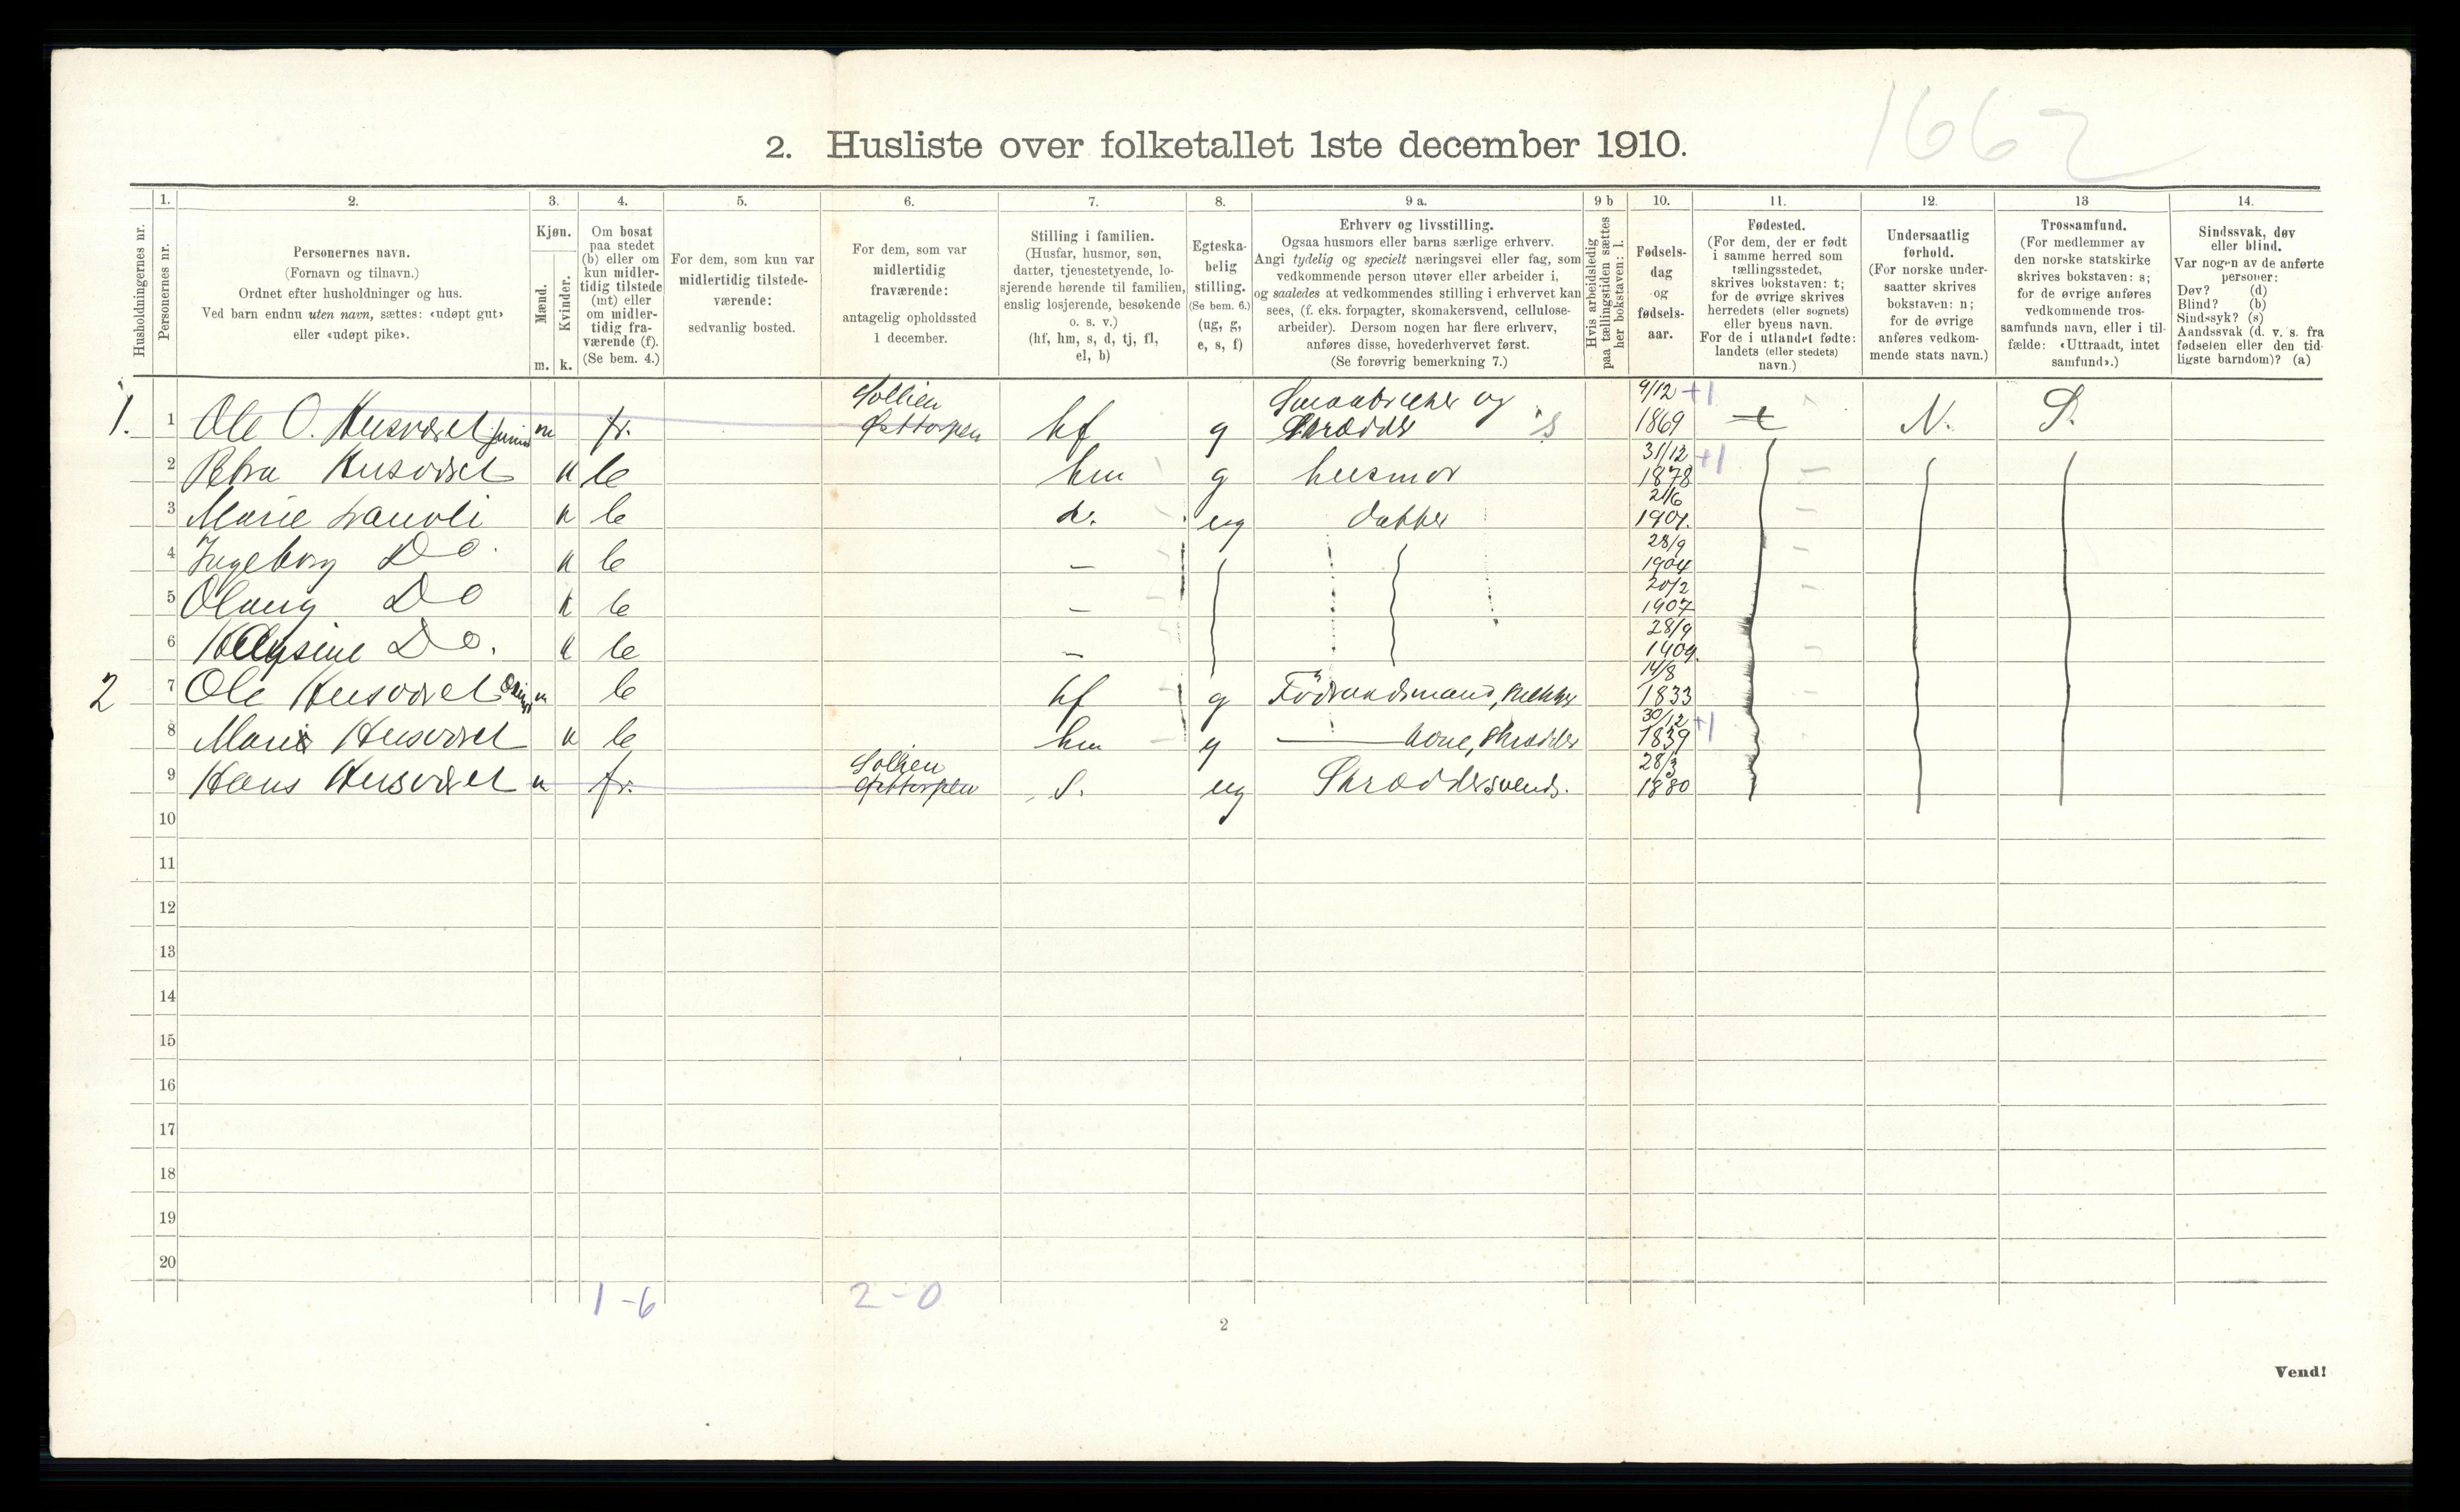 1662
2. Husliste over folketallet 1ste december 1910.
Husholdningernes nr.
1.
Personernes nr.
2.
Personernes navn.
(Fornavn og tilnavn.)
Ordnet efter husholdninger og hus.
Ved barn endnu uten navn, sættes: «udøpt gut»
eller «udøpt pike».
3.
Kjøn.
Mænd.
Kvinder.
m. k.
4.
Om bosat
paa stedet
(b) eller om
kun midler-
tidig tilstede
(mt) eller
om midler-
tidig fra-
værende (f).
(Se bem. 4.)
5.
For dem, som kun var
midlertidig tilstede-
værende:
sedvanlig bosted.
6.
For dem, som var
midlertidig
fraværende:
antagelig opholdssted
1 december.
7.
Stilling i familien.
(Husfar, husmor, søn,
datter, tjenestetyende, lo-
sjerende hørende til familien,
enslig losjerende, besøkende
o. s. v.)
(hf, hm, s, d, tj, fl,
el, b)
8.
Egteska-
belig
stilling.
(Se bem. 6.)
(ug, g,
e, s, f)
9 a.
Erhverv og livsstilling.
Ogsaa husmors eller barns særlige erhverv.
Angi tydelig og specielt næringsvei eller fag, som
vedkommende person utøver eller arbeider i,
og saaledes at vedkommendes stilling i erhvervet kan
sees, (f. eks. forpagter, skomakersvend, cellulose-
arbeider). Dersom nogen har flere erhverv,
anføres disse, hovederhvervet først.
(Se forøvrig bemerkning 7.)
9 b
Hvis arbeidsledig
paa tællingstiden sættes
her bokstaven: l.
10.
Fødsels-
dag
og
fødsels-
aar.
11.
Fødested.
(For dem, der er født
i samme herred som
tællingsstedet,
skrives bokstaven: t;
for de øvrige skrives
herredets (eller sognets)
eller byens navn.
For de i utlandet fødte:
landets (eller stedets)
navn.)
12.
Undersaatlig
forhold.
(For norske under-
saatter skrives
bokstaven: n;
for de øvrige
anføres vedkom-
mende stats navn.)
13
Trossamfund.
(For medlemmer av
den norske statskirke
skrives bokstaven: s;
for de øvrige anføres
vedkommende tros-
samfunds navn, eller i til-
fælde: «Uttraadt, intet
samfund».)
14.
Sindssvak, døv
eller blind.
Var nogen av de anførte
personer:
Døv? (d)
Blind? (b)
Sindssyk? (s)
Aandssvak (d. v. s. fra
fødselen eller den tid-
ligste barndom)? (a)
1. 1 Ole O. Husværet junior m fr. Sollien hf g Smaabruker og Skrædder s 9/12 1869 +1 t N. S.
2 Petra Husværet k b hm g husmor 31/12 1878 +1
3 Marie k b d. ug datter 21/6 1901.
4 Ingeborg Do. k b — 28/9 1904
5 Olaug Do k b — 20/2 1907
6 Do. k b — 28/9 1909.
2 7 Ole Husværet m b hf g Föderaadsmand, 14/8 1833
8 Marie Husværet k b hm g — kone, 30/12 1839 +1
9 Hans Husværet m fr. Sollien S. ug Skræddersvend. 28/3 1880
10
11
12
13
14
15
16
17
18
19
20
1-6
2-0
2
Vend!